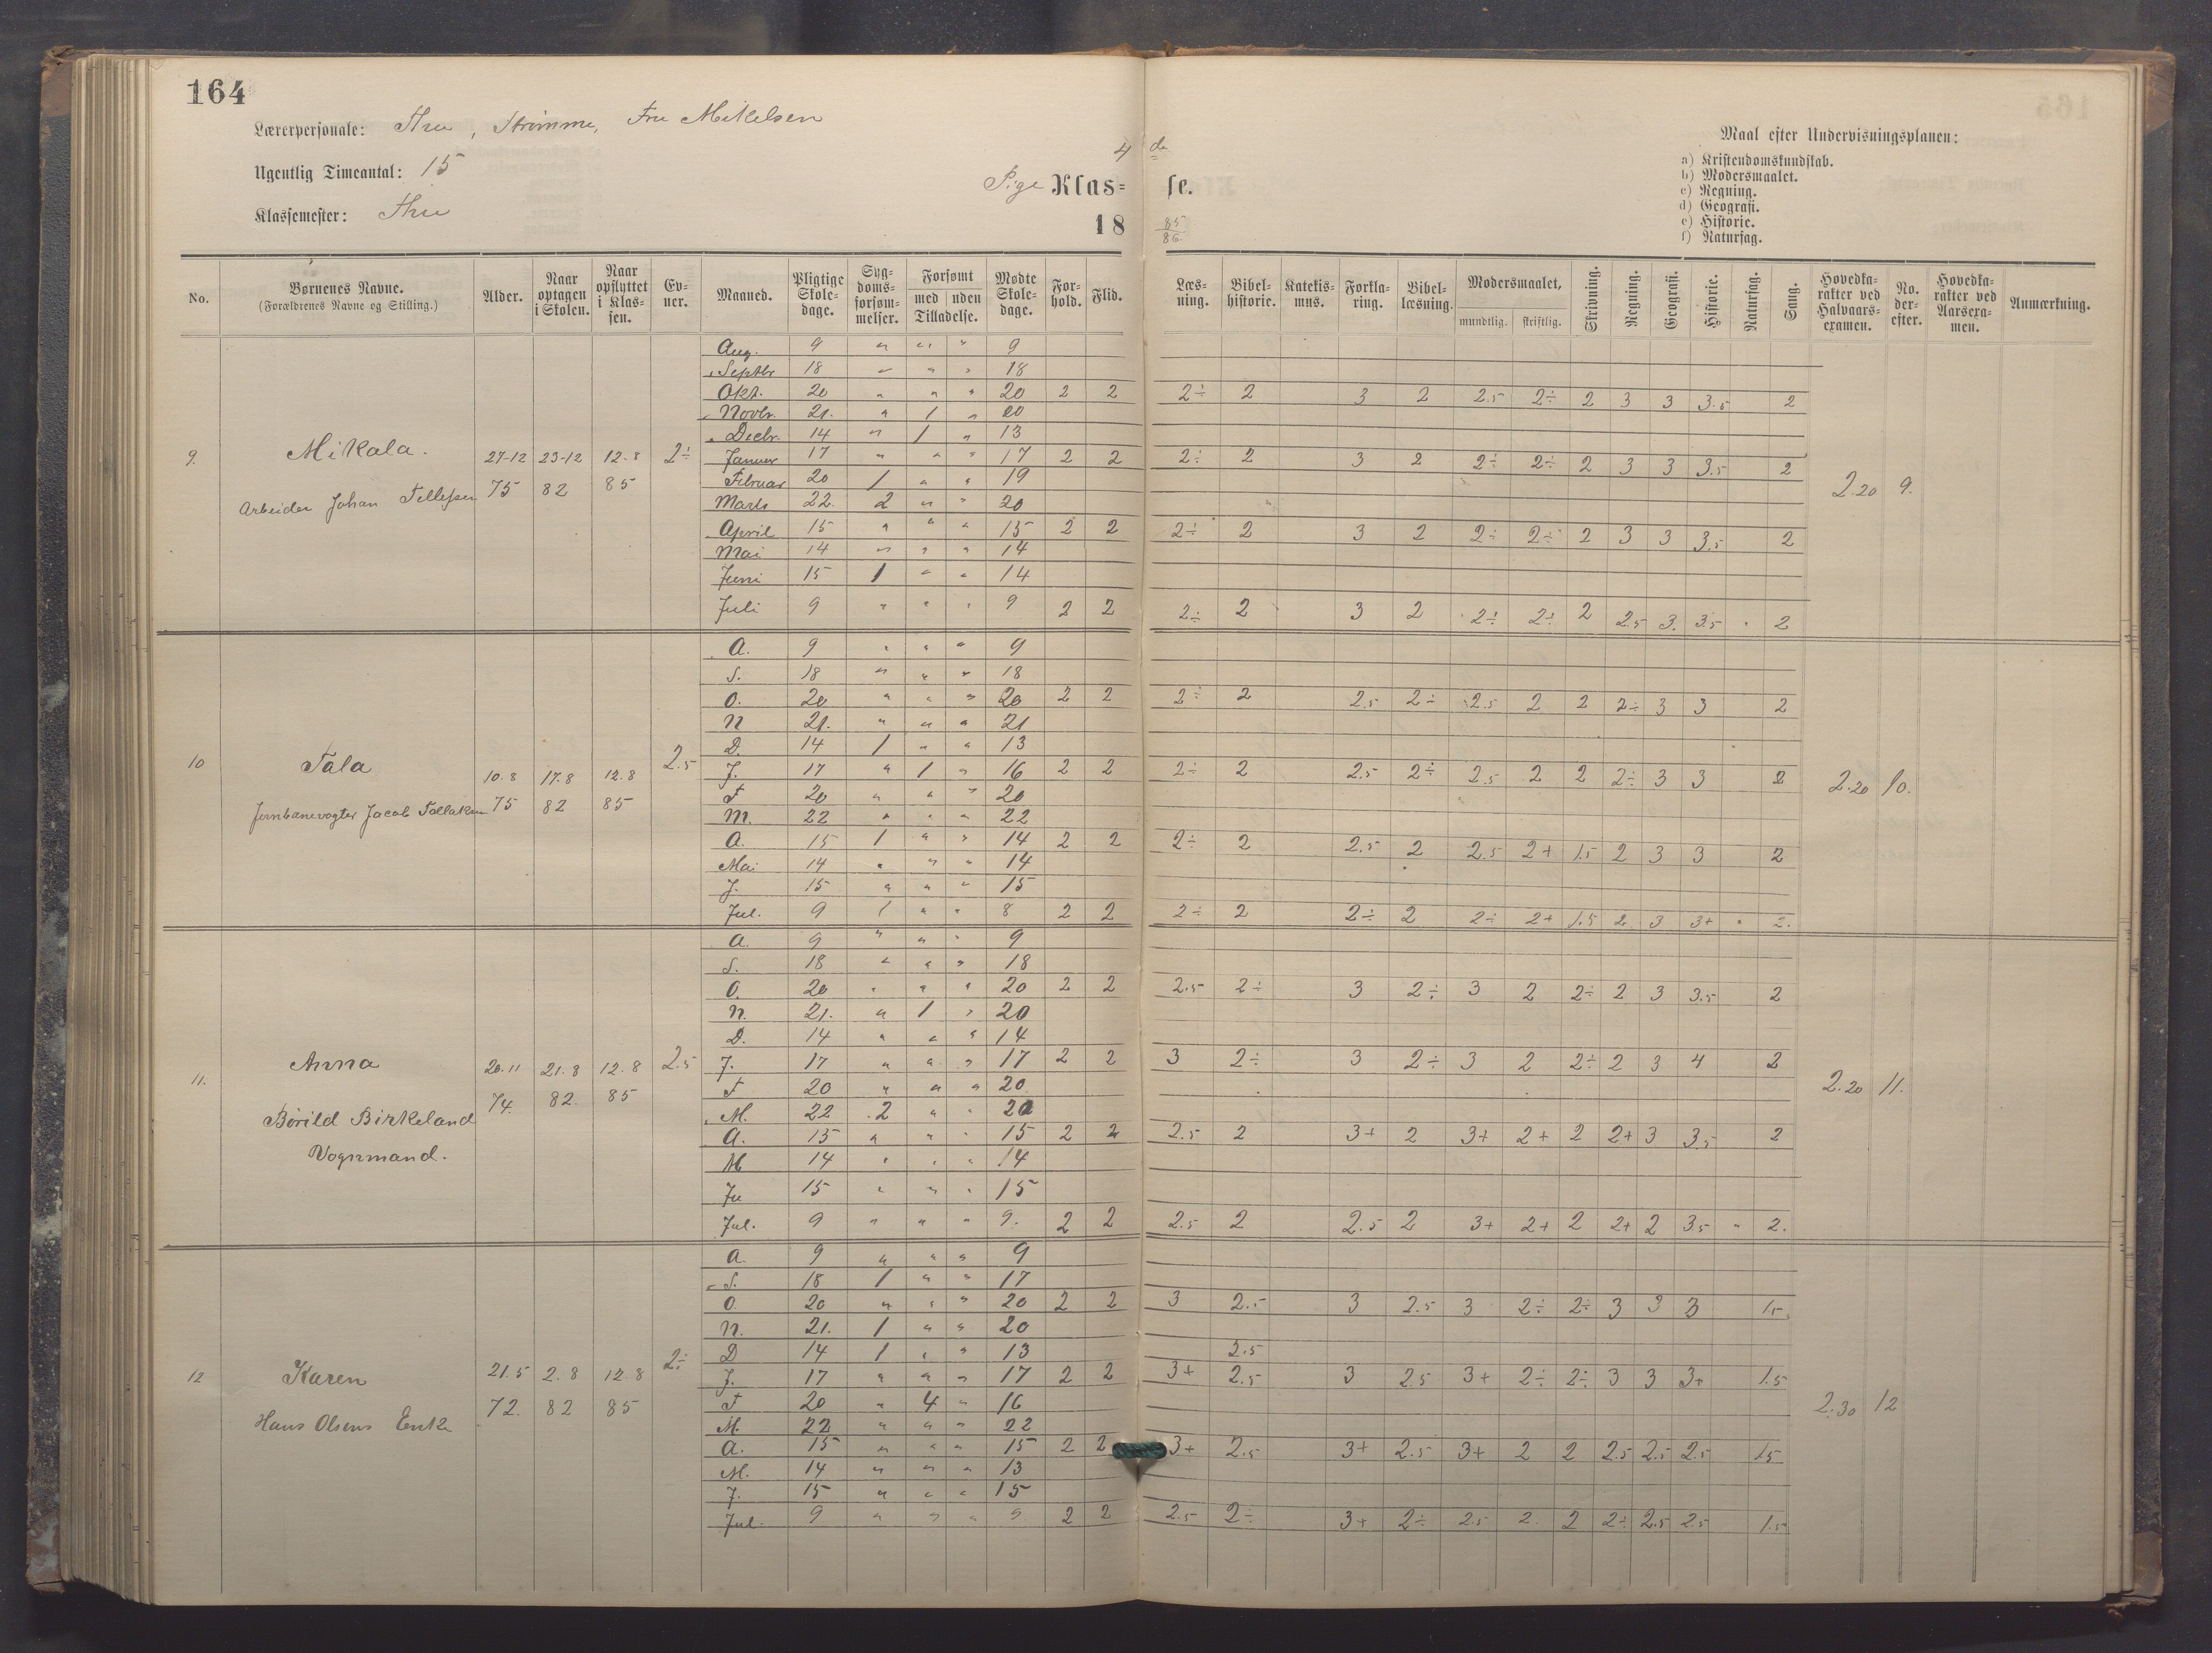 164
Lærerpersonale: Thu, Strømme, Fru Mikelsen
Ugentlig Timeantal: 15
Klassemester: Thu
4 de
Pige Klas= se.
18 85/86.
Maal efter Undervisningsplanen:
a) Kristendomskundskab.
b) Modersmaalet.
c) Regning.
d) Geografi.
e) Historie.
f) Naturfag.
No. | Børnenes Navne. (Forældrenes Navne og Stilling.) | Alder. | Naar optagen i Skolen. | Naar opflyttet i Klas-sen. | Ev-ner. | Maaned. | Pligtige Skole-dage. | Syg-doms-forsøm-melser. | Forsømt med uden Tilladelse. | Mødte Skole-dage. | For-hold. | Flid. | Læs-ning. | Bibel-historie. | Katekis-mus. | Forkla-ring. | Bibel-læsning. | Modersmaalet, mundtlig. skriftlig. | Skrivning. | Regning. | Geografi. | Historie. | Naturfag. | Sang. | Hovedka-rakter ved Halvaars-examen. | No. der-efter. | Hovedka-rakter ved Aarsexa-men. | Anmærkning.
9. Mikala. 27-12 75 23-12 82 12.8 85 2÷
Arbeider Johan Tellefsen
Aug. 9 " " " 9
Septbr 18 " " " 18
Okt. 20 " " " 20 2 2 2÷ 2 3 2 2.5 2÷ 2 3 3 3.5 2
Novbr. 21. " 1 " 20
Decbr. 14 " 1 " 13
Januar 17 " " " 17 2 2 2÷ 2 3 2 2÷ 2÷ 2 3 3 3.5 2
Februar 20 1 " " 19
Marts 22. 2 " " 20
April 15 " " " 15 2 2 2÷ 2 3 2 2÷ 2÷ 2 3 3 3.5 2
Mai 14 " " " 14
Juni 15 1 " " 14
Juli 9 " " " 9 2 2 2÷ 2 3 2 2÷ 2÷ 2 2.5 3. 3.5 " 2
2.20 9.
10 Tala 10.8 75 17.8 82 12.8 85 2.5
Jernbanevogter Jacob Tollaksen
A. 9 " " " 9
S. 18 " " " 18
O. 20 " " " 20 2 2 2÷ 2 2.5 2÷ 2.5 2 2 2÷ 3 3 2
N 21. " " " 21
D. 14 1 " " 13
J. 17 " 1 " 16 2 2 2÷ 2 2.5 2÷ 2.5 2 2 2÷ 3 3 2
F 20 " " " 20
M. 22 " " " 22
A. 15 1 " " 14 2 2 2÷ 2 2.5 2 2.5 2+ 1.5 2 3 3 2
Mai 14 " " " 14
J. 15 " " " 15
Jul. 9 1 " " 8 2 2 2÷ 2 2÷ 2 2÷ 2+ 1.5 2 3 3+ " 2.
2.20 10.
11. Anna 20.11 74. 21.8 82. 12.8 85 2.5
Børild Birkeland
Vognmand.
A. 9 " " " 9
S. 18 " " " 18
O. 20 " " " 20 2 2 2.5 2÷ 3 2÷ 3 2 2÷ 2 3 3.5 2
N. 21. " 1 " 20
D. 14 " " " 14
J. 17 " " " 17 2 2 3 2÷ 3 2÷ 3 2 2÷ 2 3 4 2
F 20 " " " 20
M. 22 2 " " 20
A. 15 " " " 15 2 2 2.5 2 3+ 2 3+ 2+ 2 2+ 3 3.5 2
M 14 " " " 14
Ju 15 " " " 15
Jul. 9 " " " 9. 2 2 2.5 2 2.5 2 3+ 2+ 2 2+ 2 3.5 " 2.
2.20 11.
12 Karen 21.5 72. 2.8 82 12.8 85 2÷
Hans Olsens Enke
A. 9 " " " 9
S. 18 1 " " 17
O. 20 " " " 20 2 2 3 2.5 3 2.5 3 2÷ 2÷ 3 3 3 1.5
N. 21. 1 " " 20
D 14 1 " " 13 2.5
J. 17 " " " 17 2 2 3+ 2.5 3 2.5 3+ 2÷ 2÷ 3 3 3+ 1.5
F 20 " 4 " 16
M. 22 " " " 22
A. 15 " " " 15 2 2 3+ 2.5 3+ 2.5 3+ 2 2 2.5 2.5 2.5 1.5
M. 14 " " " 13
J. 15 " " " 15
Jul. 9 " " " 9 2 2 2.5 2÷ 3+ 2÷ 2.5 2. 2 2÷ 2.5 2.5 1.5
2.30 12